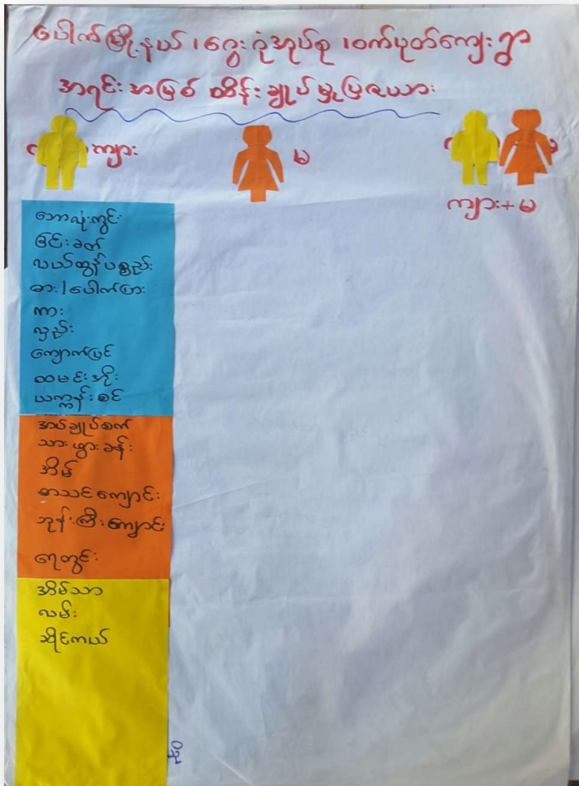 ပေါက်မြို့နယ်၊ ငွေးဂုံအုပ်စု၊ ဝက်ပုတ်ကျေးရွာ
အရင်းအမြစ် ထိန်းချုပ်မှုပြဇယား
ကျား
မ
ကျား+မ
ဘောလုံးကွင်း
ခြင်းခတ်
လယ်ထွန်ပစ္စည်း
ဓား/ပေါက်ပြား
ကား
လှည်း
ကျောက်ပြင်
ထမင်းအိုး
ယက္ကန်းစင်
အပ်ချုပ်စက်
သားဖွားခန်း
အိမ်
စာသင်ကျောင်း
ဘုန်းကြီးကျောင်း
ရေတွင်း
အိမ်သာ
လမ်း
ဆိုင်ကယ်